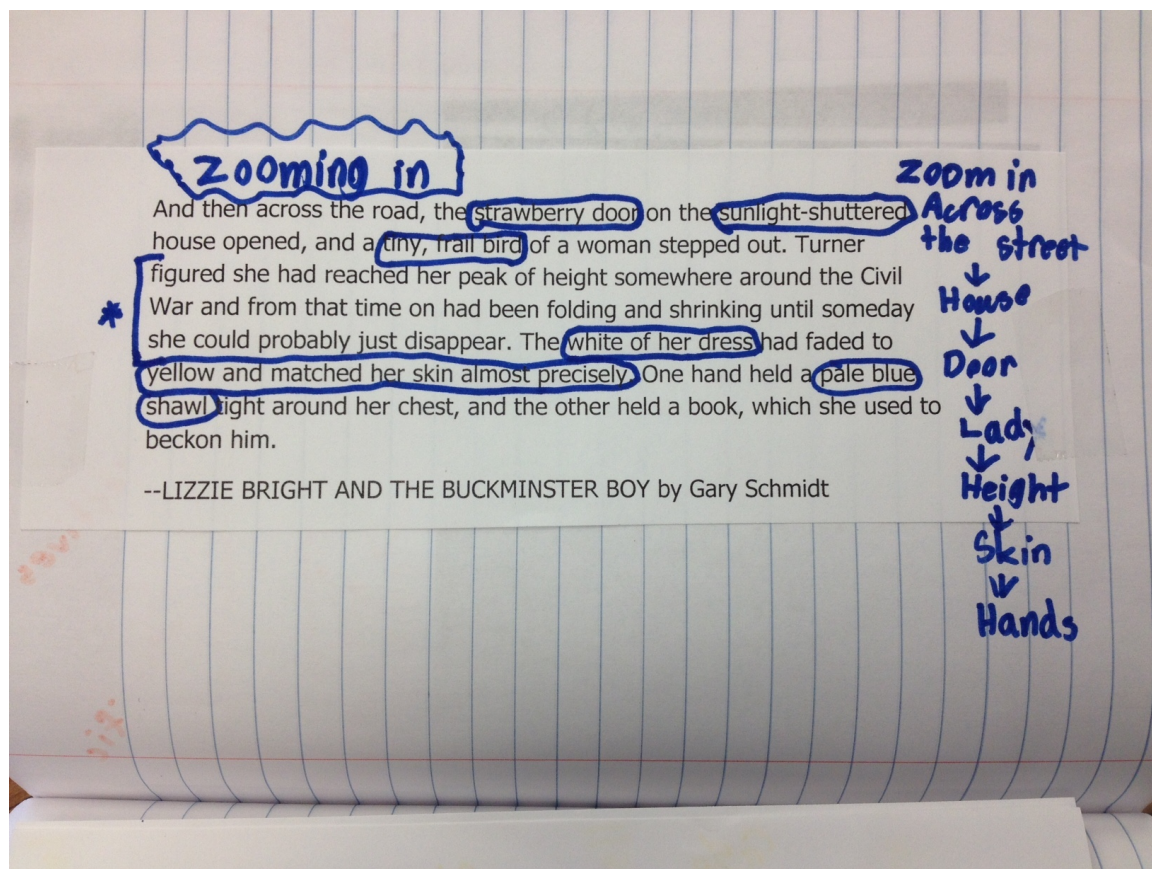 Zooming in
And then across the road, the strawberry door on the sunlight-shuttered
house opened, and a tiny, frail bird of a woman stepped out. Turner
figured she had reached her peak of height somewhere around the Civil
War and from that time on had been folding and shrinking until someday
she could probably just disappear. The white of her dress had faded to
yellow and matched her skin almost precisely. One hand held a pale blue
shawl tight around her chest, and the other held a book, which she used to
beckon him.
--LIZZIE BRIGHT AND THE BUCKMINSTER BOY by Gary Schmidt
Zoom in
Across
the street
↓
House
↓
Door
↓
Lady
↓
Height
↓
Skin
↓
Hands